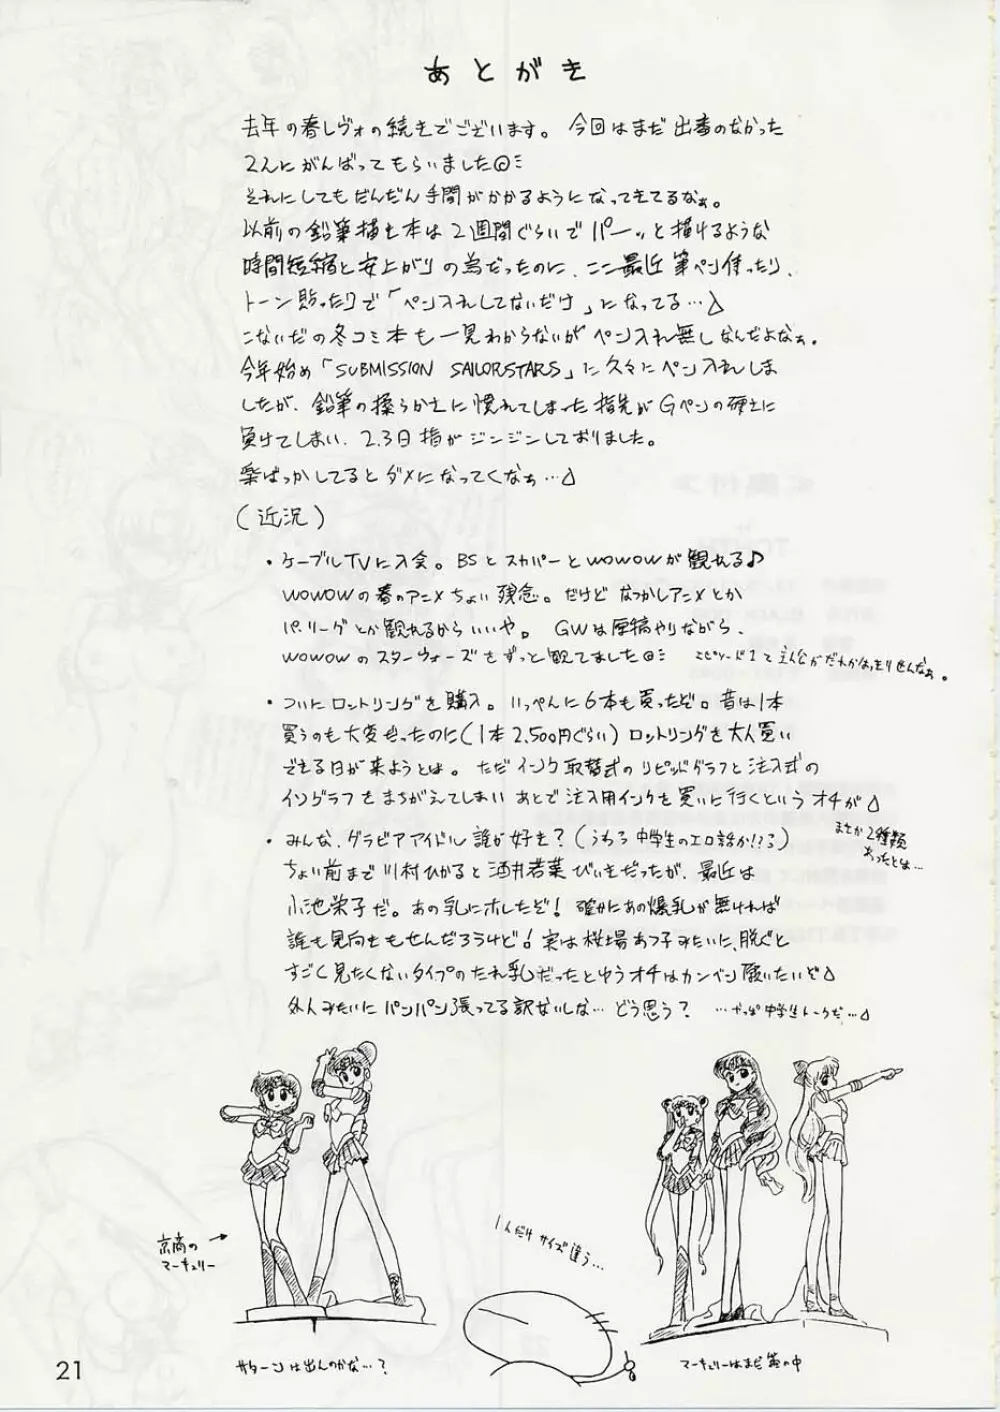 あとがき
去年の春レヴォの続きでございます。今回はまだ出番のなかった
2人にがんばってもらいました
それにしてもだんだん手間がかかるようになってきてるなぁ。
以前の鉛筆描き本は2週間ぐらいでパーッと描けるような
時間短縮と安上がりの為だったのに、ここ最近筆ペン使ったり、
トーン貼ったりで「ペン入れしてないだけ」になってる…
こないだの冬コミ本も一見わからないがペン入れ無しなんだよなぁ。
今年始め「SUBMISSION SAILORSTARS」に久々にペン入れしま
したが、鉛筆の柔らかさに慣れてしまった指先がGペンの硬さに
負けてしまい、2.3日指がジンジンしておりました。
楽ばっかしてるとダメになってくなぁ…
(近況)
・ケーブルTVに入会。BSとスカパーとWOWOWが観れる♪
WOWOWの春のアニメちょい残念。だけどなつかしアニメとか
パ・リーグとか観れるからいいや。GWは原稿やりながら、
WOWOWのスターウォーズをずっと観てました エピソード1て主人公がだれかはっきりせんなぁ。
・ついにロットリングを購入。いっぺんに6本も買ったど。昔は1本
買うのも大変だったのに(1本2,500円ぐらい)ロットリングを大人買い
できる日が来ようとは。ただインク取替式のリピッドグラフと注入式の
イソグラフをまちがえてしまいあとで注入用インクを買いに行くというオチが
まさか2種類
あったとは…
・みんな、グラビアアイドル誰が好き?(うわっ中学生のエロ話か!?る)
ちょい前まで川村ひかると酒井若菜びいきだったが、最近は
小池栄子だ。あの乳にホレたぞ!確かにあの爆乳が無ければ
誰も見向きもせんだろうけど!実は桜場あつ子みたいに、脱ぐと
すごく見たくないタイプのたれ乳だったとゆうオチはカンベン願いたいぞ
外人みたいにパンパン張ってる訳ないしな…どう思う? …やっぱ中学生トークだ…
京商の
マーキュリー
1人だけサイズ違う…
サターンは出んのかな…?
マーキュリーはまだ箱の中
21